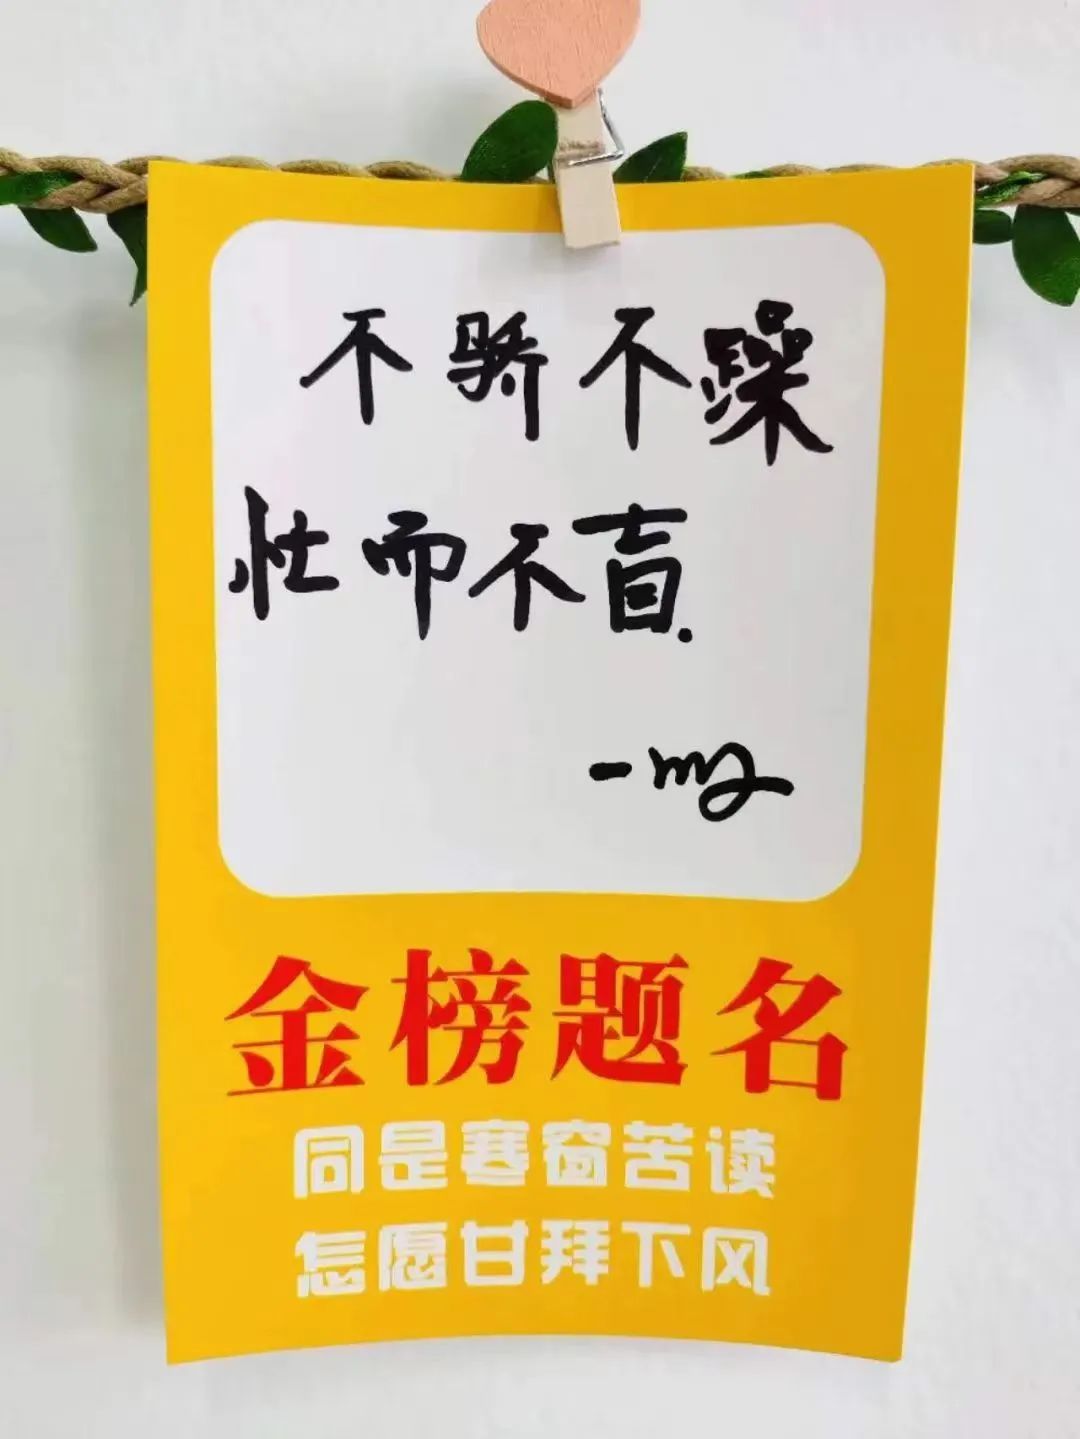 不骄不躁
忙而不盲.
金榜题名
同是寒窗苦读
怎愿甘拜下风